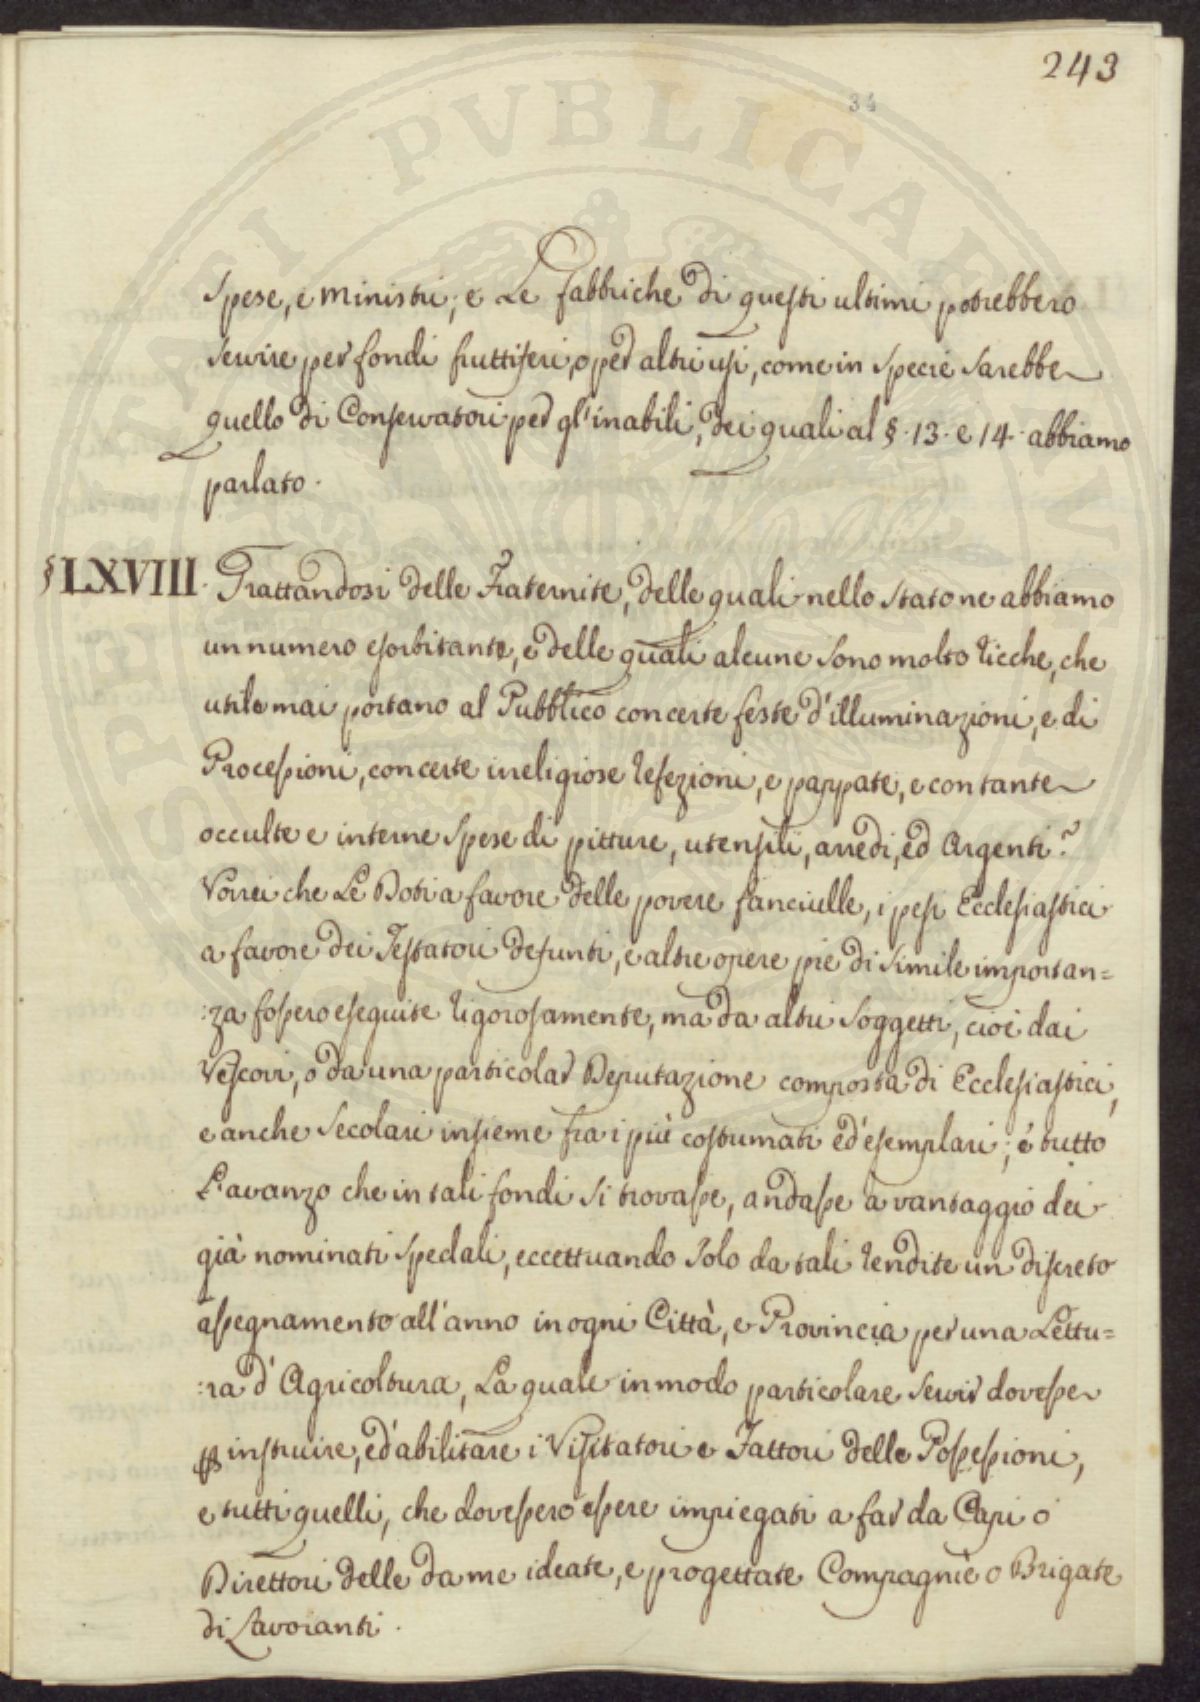 243
34
Spese, e Ministri; e Le fabbriche di questi ultimi potrebbero
servire per fondi fruttiferi, o per altri usi, come in specie sarebbe
quello di Conservatori per gl'inabili, dei quali al §. 13. e 14. abbiamo
parlato.
§ LXVIII. Trattandosi delle Fraternite, delle quali nello stato ne abbiamo
un numero esorbitante, e delle quali alcune sono molto ricche, che
utile mai portano al Pubblico con certe feste d'illuminazioni, e di
Processioni, con certe irreligiose refezioni, e pappate, e con tante
occulte e interne spese di pitture, utensili, arredi, ed Argenti?
Vorrei che Le Doti a favore delle povere fanciulle, i pesi Ecclesiastici
a favore dei Testatori defunti, e altre opere pie di simile importan=
:za fossero eseguite rigorosamente, ma da altri soggetti, cioè dai
Vescovi, o da una particolar Deputazione composta di Ecclesiastici,
e anche secolari insieme fra i più costumati ed'esemplari; e tutto
L'avanzo che in tali fondi si trovasse, andasse a vantaggio dei
già nominati spedali, eccettuando solo da tali rendite un discreto
assegnamento all'anno in ogni Città, e Provincia per una Lettu=
:ra d'Agricoltura, La quale in modo particolare servir dovesse
per instruire, ed'abilitare i Visitatori e Fattori delle Possessioni,
e tutti quelli, che dovessero essere impiegati a far da Capi o
Direttori delle da me ideate, e progettate Compagnie o Brigate
di Lavoranti.
SPQR STATI PVBLICAE